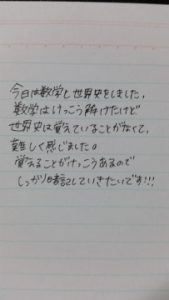 今日は数学と世界史をしました。
数学はけっこう解けたけど
世界史は覚えていることがなくて、
難しく感じました。
覚えることがけっこうあるので
しっかり暗記していきたいです!!!